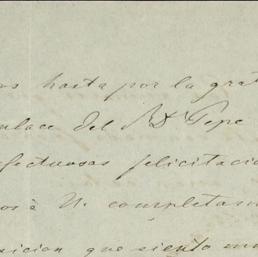 os hasta por la grat
nlace del Dr Pepe
fectuosas felicitacio
os à V. completam
sicion que siento mu